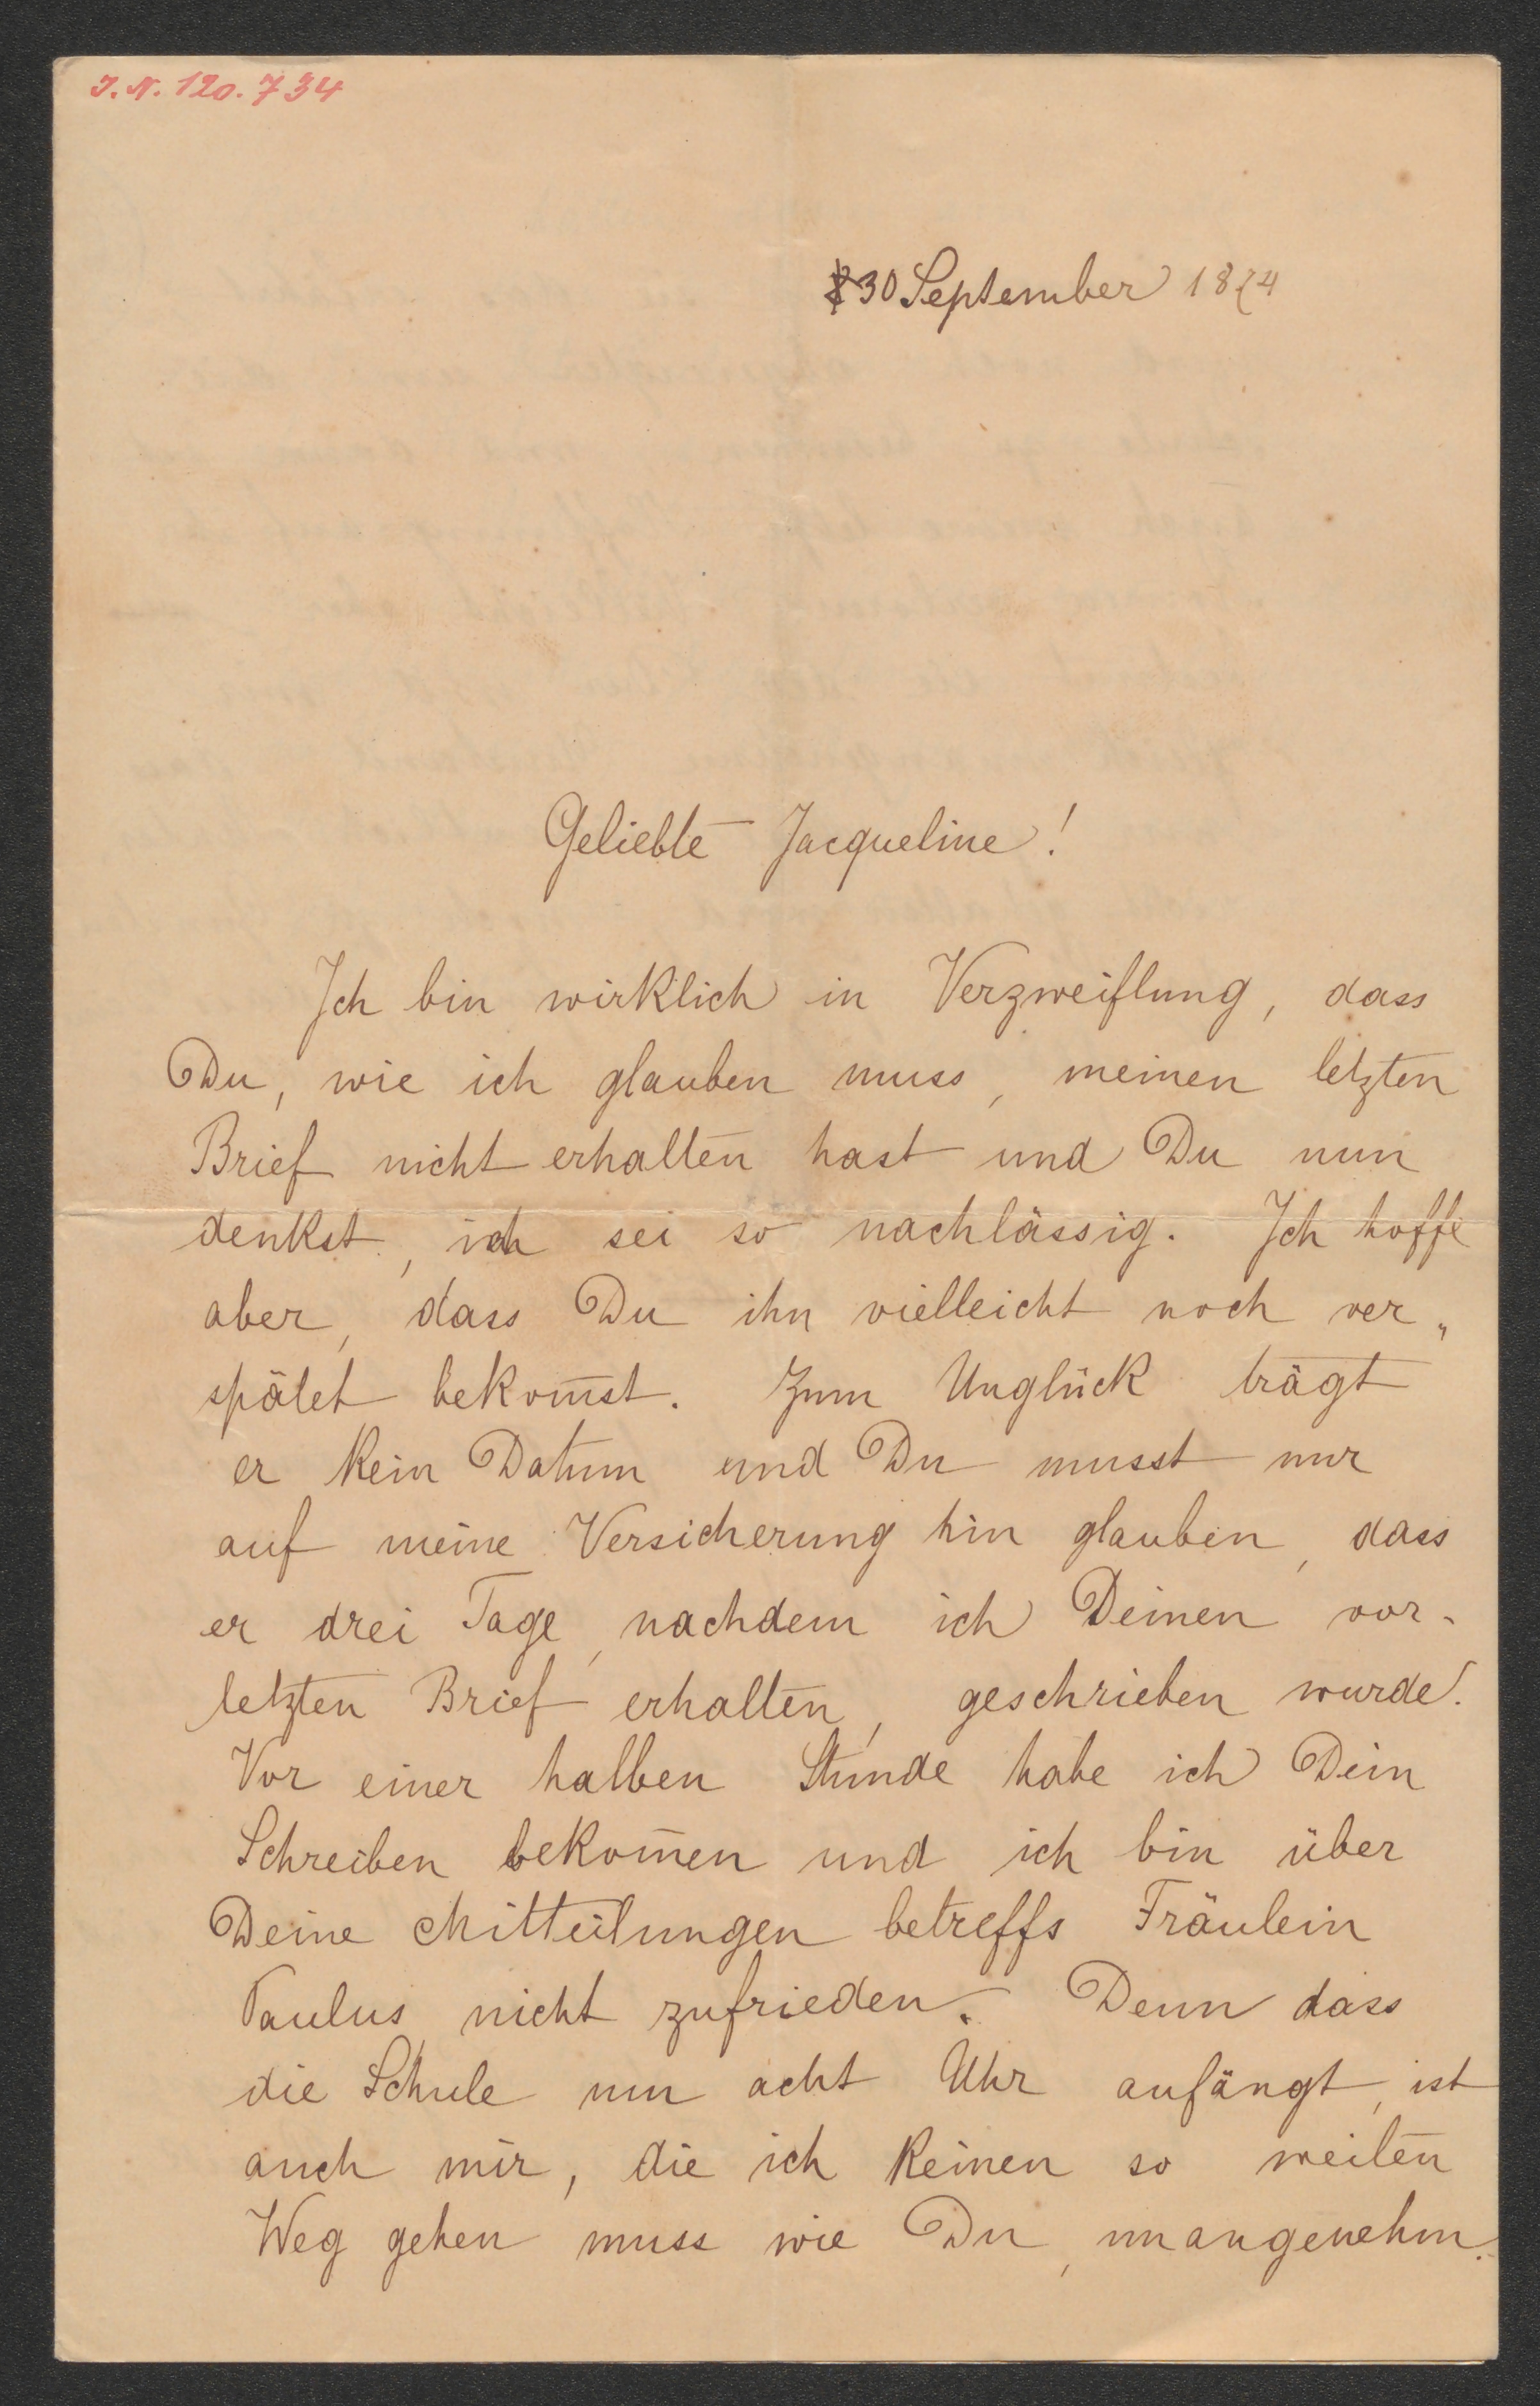 J. N. 120.734
30 September 1874
Geliebte Jacqueline!
Ich bin wirklich in Verzweiflung, dass
Du, wie ich glauben muss, meinen letzten
Brief nicht erhalten hast und Du nun
denkst, ich sei so nachlässig. Ich hoffe
aber, dass Du ihn vielleicht noch ver„
spätet bekom̅st. Zum Unglück trägt
er kein Datum und Du musst nur
auf meine Versicherung hin glauben, dass
er drei Tage, nachdem ich Deinen vor-
letzten Brief erhalten, geschrieben wurde.
Vor einer halben Stunde habe ich Dein
Schreiben bekom̅en und ich bin über
Deine Mitteilungen betreffs Fräulein
Paulus nicht zufrieden. Denn dass
die Schule um acht Uhr anfängt, ist
auch mir, die ich keinen so weiten
Weg gehen muss wie Du, unangenehm.